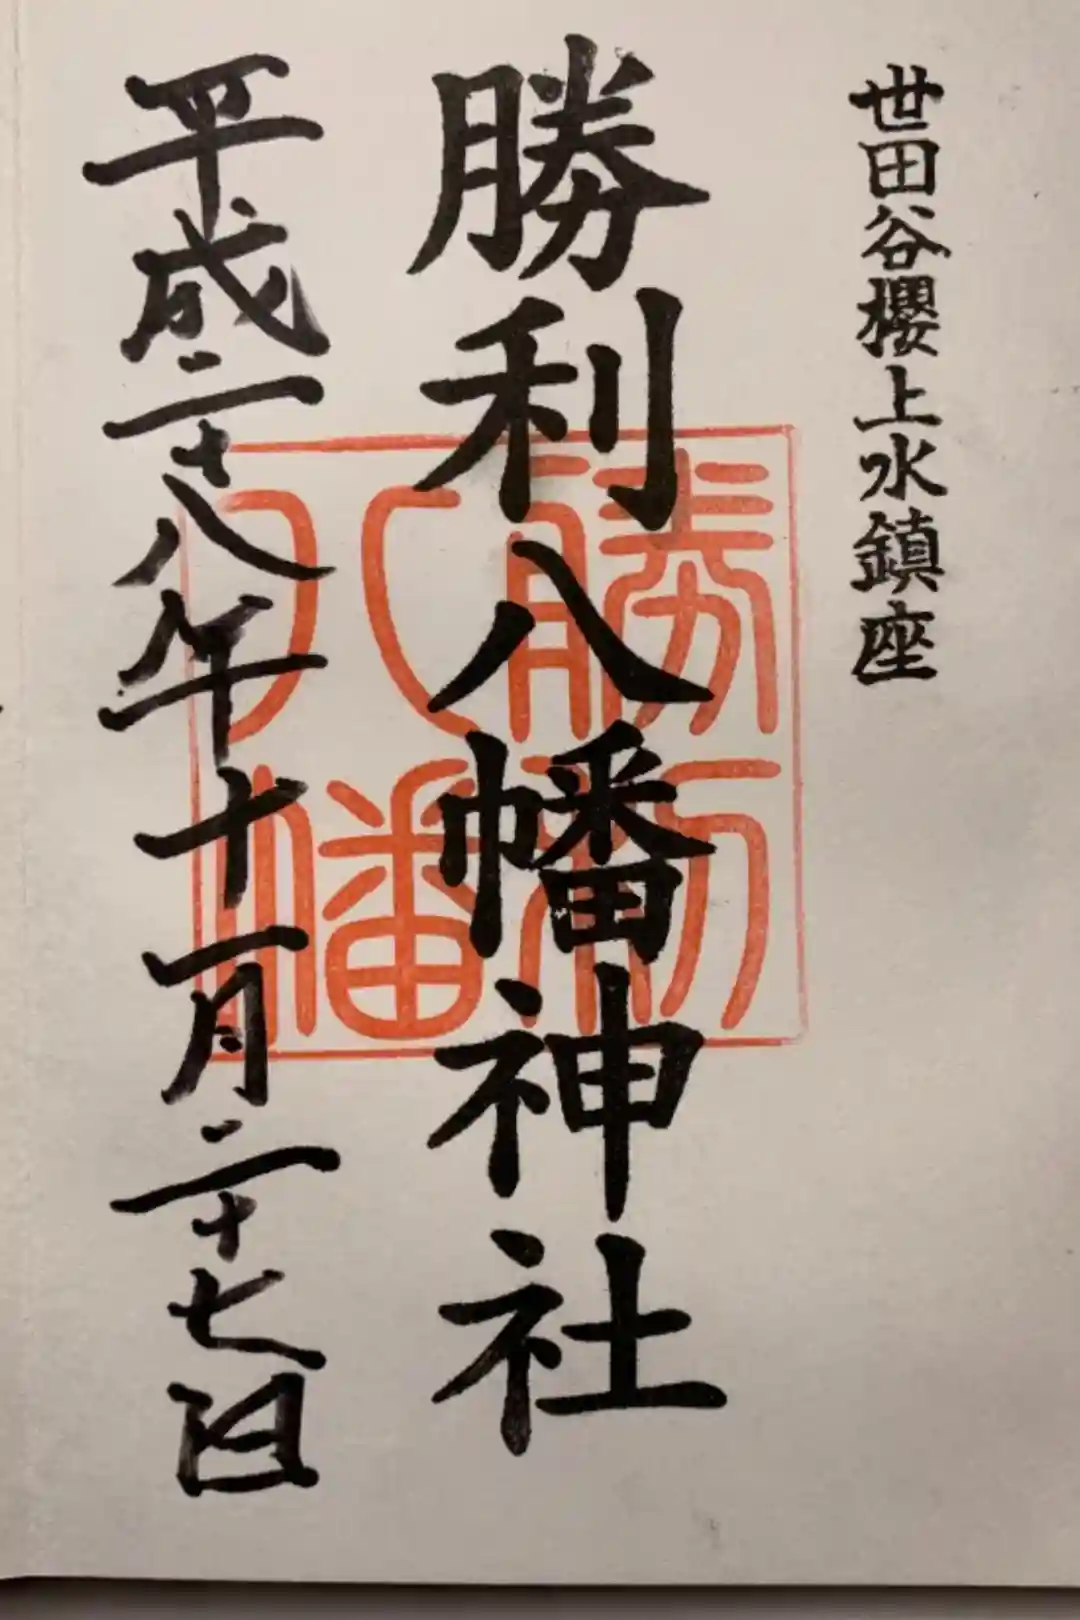 世田谷櫻上水鎮座
勝利八幡神社
勝利
八幡
平成二十八年十一月二十七日